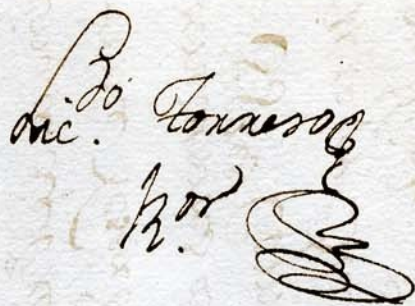 Lic.do Torres
R.or